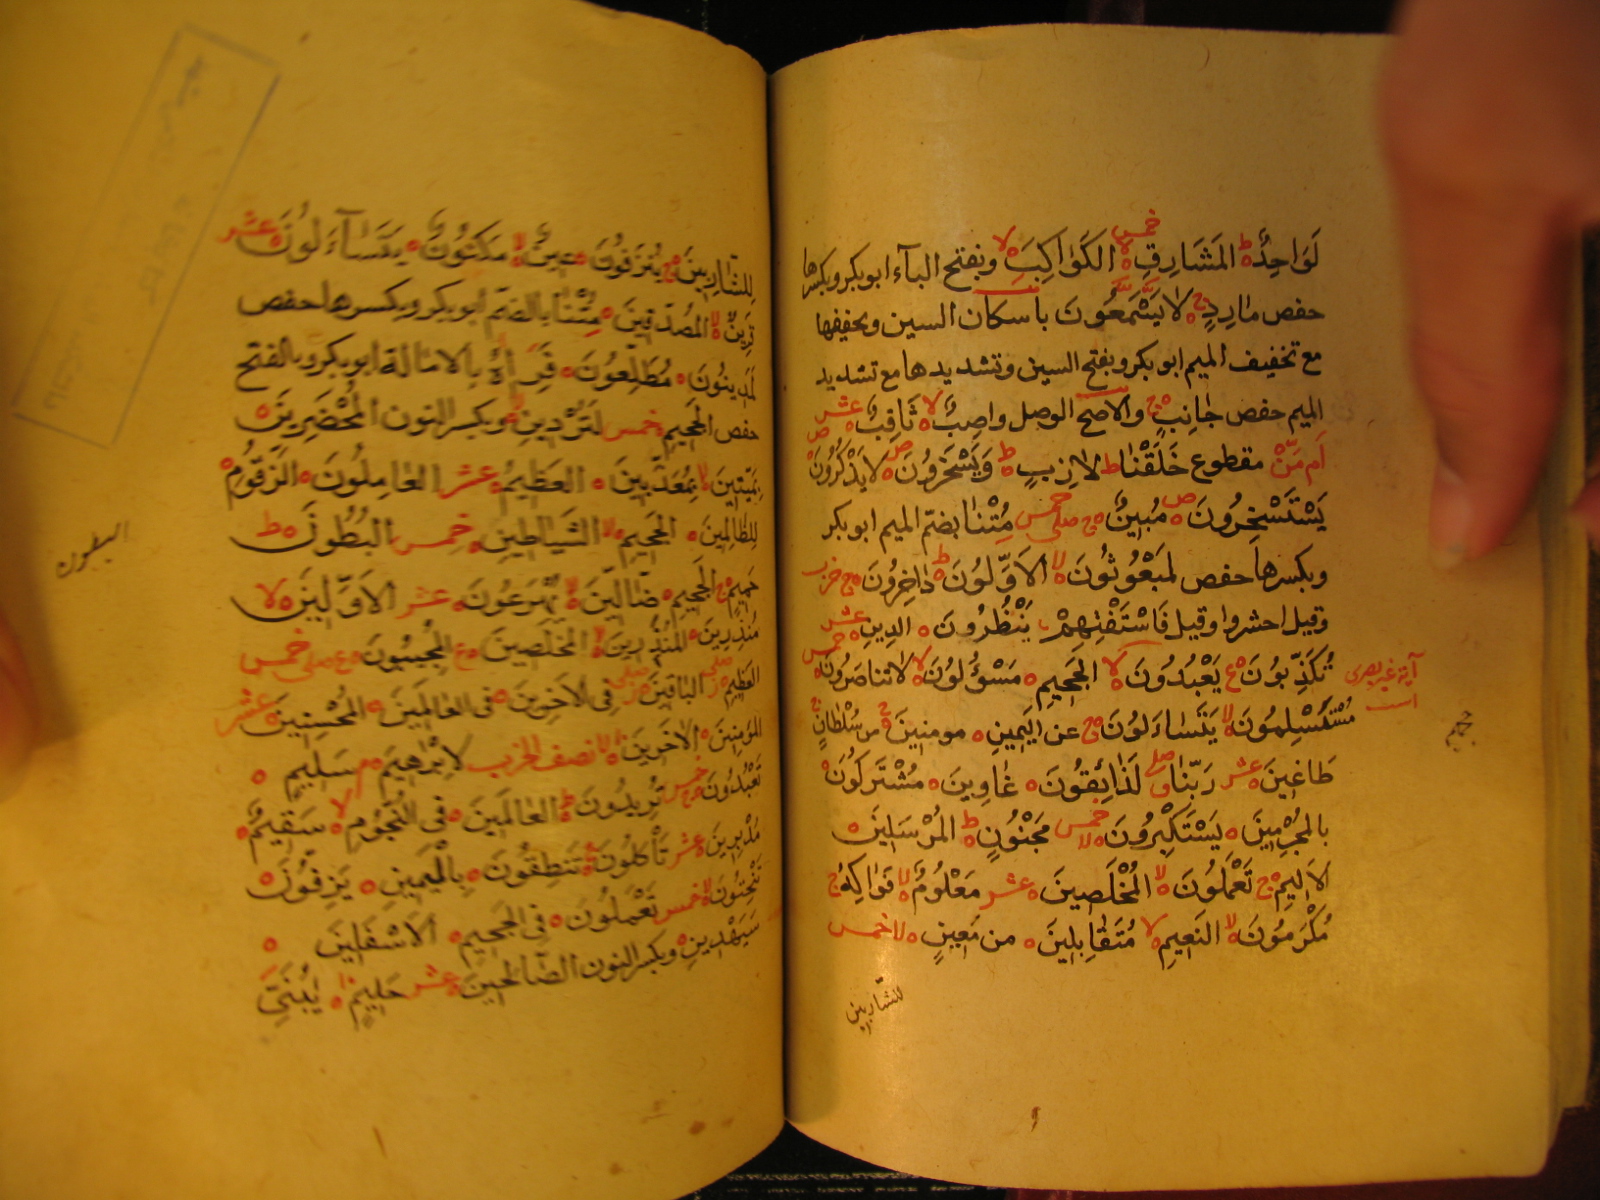 خمس
لَوَاحِدٌ ط المَشَارِقِ لا الكَوَاكِبِ لا وبفتح البآء ابوبكر وبكسرها
حفص مَارِدٍ ج لَا يَسَّمَّعُونَ باسكان السين وتخفيفها
مع تخفيف الميم ابوبكر وبفتح السين وتشديدها مع تشديد
الميم حفص جَانِبٍ ج والاصح الوصل واصِبٌ لا ثَاقِبٌ عشر
اَم مَّنْ مقطوع خَلَقْنَا ط لَازِبٍ ط وَيَسْخَرُونَ ص لا يَذْكُرُونَ ص
يَسْتَسْخِرُونَ ص مُبِينٌ ج صلى خمس مِتْنَا بضمّ الميم ابوبكر
وبكسرها حفص لَمَبْعُوثُونَ لا الاَوَّلُونَ ط دَاخِرُونَ ج حزب
وقيل احشروا وقيل فَاسْتَفْتِهِمْ يَنْظُرُونَ الدِينِ عشر
تُكَذِّبُونَ ع يَعْبُدُونَ لا الجَحِيمِ مَسْؤُلُونَ لا لا تَنَاصَرُونَ خمس
آية غير بصرى است
مُسْتَسْلِمُونَ لا يَتَسَاءَلُونَ ج عن اليَمِينِ مومنين ج من سُلْطَانٍ ج
طَاغِينَ عشر رَبِّنَا صلى لَذَائِقُونَ غَاوِينَ مُشْتَرِكُونَ
بالمُجْرِمِينَ يَسْتَكْبِرُونَ لا خمس مَجْنُونٍ ط المُرْسَلِينَ
الاَلِيمِ ج تَعْمَلُونَ لا المُخْلَصِينَ عشر مَعْلُومٌ لا فَوَاكِهُ ج
مُكْرَمُونَ لا النَعِيمِ لا مُتَقَابِلِينَ من مَعِينٍ لا خمس
للشَّارِبِينَ
للشَّارِبِينَ ج يُنْزَفُونَ عِينٌ لا مَكْنُونٌ يَتَسَآءَلُونَ عشر
قَرِينٌ لا المُصَدِّقِينَ مِتْنَا بالضم ابوبكر وبكسرها حفص
لَمَدِينُونَ مُطَّلِعُونَ فَرَاٰهُ بالامالة ابوبكر وبالفتح
حفص الجَحِيمِ خمس لَتُرْدِينِ لا وبكسر النون المُحْضَرِينَ
بِمَيِّتِينَ لا بِمُعَذَّبِينَ العَظِيمُ عشر العَامِلُونَ الزَقُّومِ
للظَّالِمِينَ الجَحِيمِ لا الشَيَاطِينِ خمس البُطُونَ ط
البطون
حَمِيمٍ ج الجَحِيمِ ضَالِّينَ لا يُهْرَعُونَ عشر الاَوَّلِينَ لا
مُنْذِرِينَ المُنْذَرِينَ لا المُخْلَصِينَ ع المُجِيبُونَ ع صلى خمس
العَظِيمِ ز صلى البَاقِينَ ز صلى فى الآخِرِينَ فى العَالَمِينَ المُحْسِنِينَ عشر
المُؤمِنِينَ الآخَرِينَ نصف الحزب لَاِبْرَاهِيمَ م سَلِيمٍ
تَعْبُدُونَ ج خمس تُرِيدُونَ ط العَالَمِينَ فى النُجُومِ لا سَقِيمٌ
مُدْبِرِينَ عشر تَأْكُلُونَ ج تَنطِقُونَ بِالْيَمِينِ يَزِفُّونَ
تَنْحِتُونَ لا خمس تَعْمَلُونَ فى الجَحِيمِ الاَسْفَلِينَ
سَيَهْدِينِ وبكسر النون الصَّالِحِينَ عشر حَلِيمٍ يَبُنَيَّ